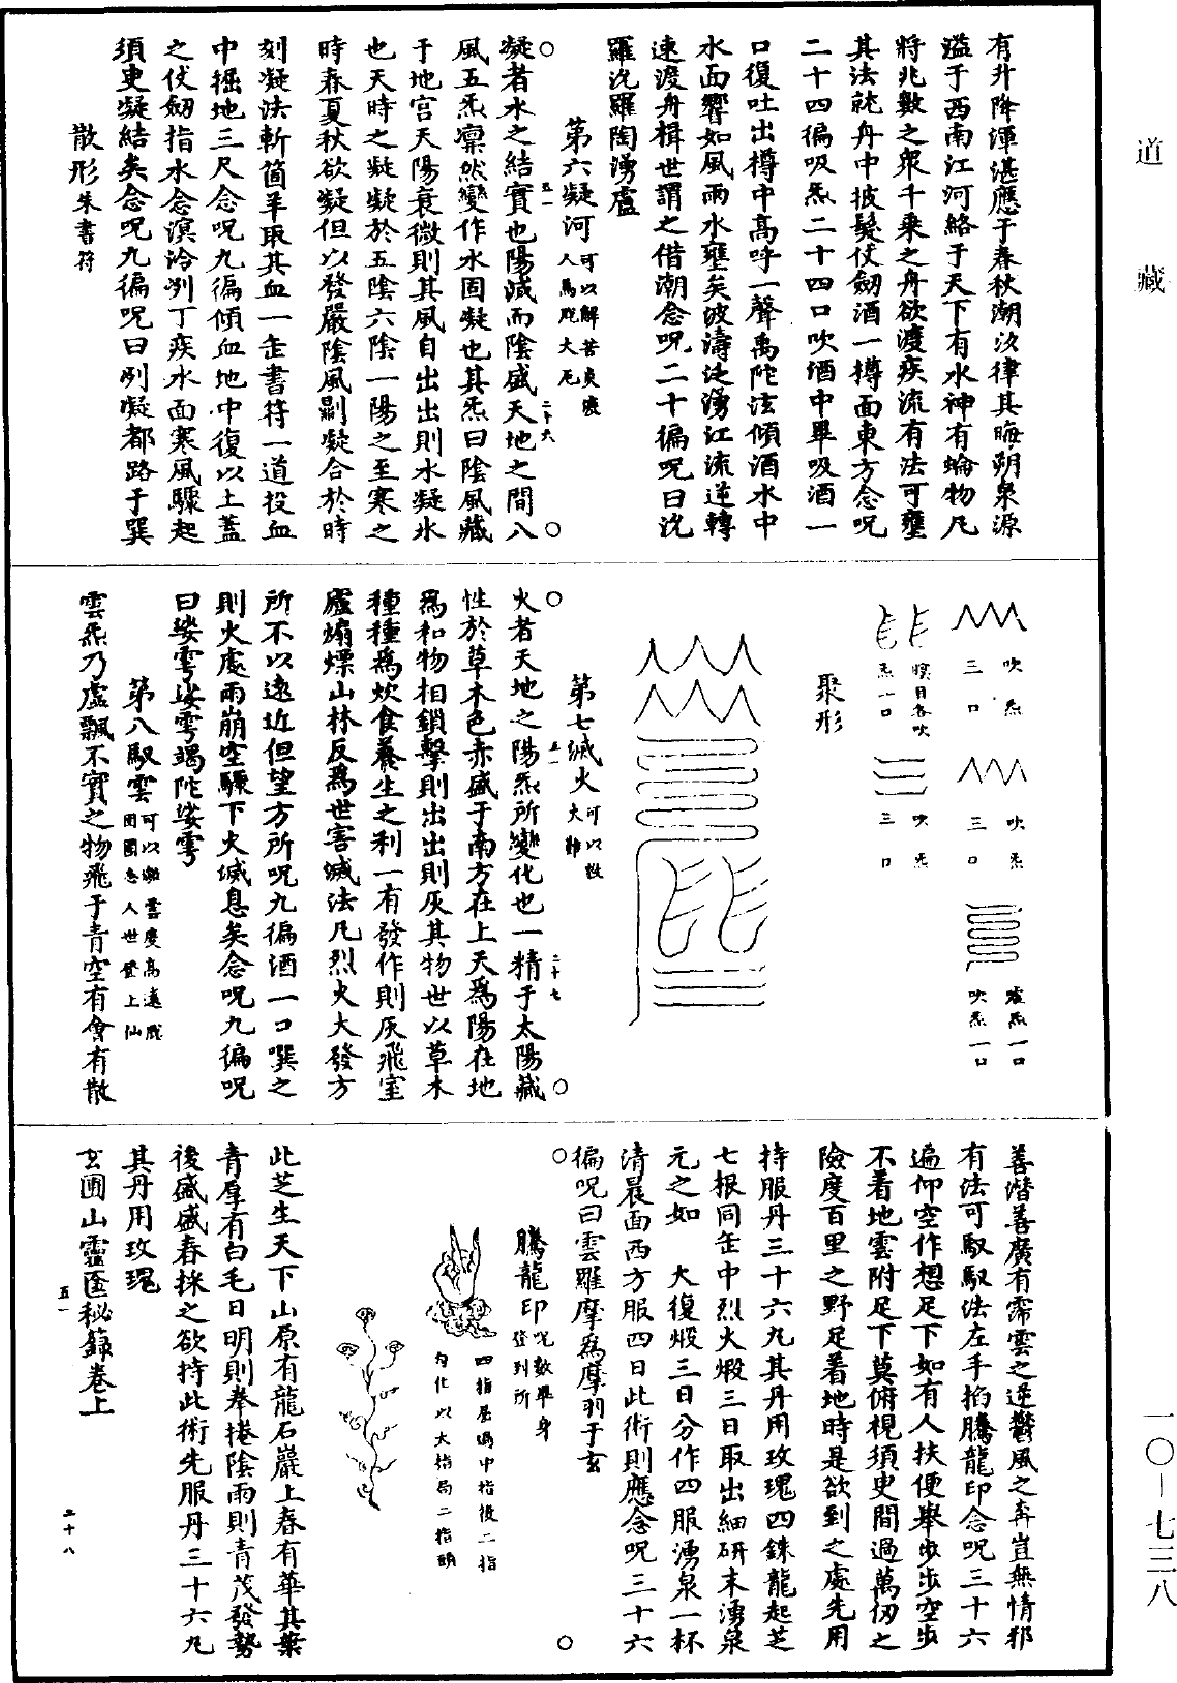 道藏
有升降渾湛應于春秋潮汐律其晦朔泉源
溢于西南江河絡于天下有水神有蜦物凡
將兆數之衆千乘之舟欲渡疾流有法可壅
其法就舟中披髮仗劒酒一樽面東方念呪
二十四徧吸炁二十四口吹酒中畢吸酒一
口復吐出樽中高呼一聲禹陀泫傾酒水中
水面響如風雨水壅矣波濤泛湧江流逆轉
速渡舟楫世謂之借潮念呪二十徧呪曰沇
羅沇羅陶湧盧
第六凝河可以解苦炎渡
人馬戕大厄
五一
二十六
凝者水之結實也陽減而陰盛天地之間八
風五炁凛然變作水固凝也其炁曰陰風藏
于地宫天陽衰微則其風自出出則水凝氷
也天時之凝凝於五陰六陰一陽之至寒之
時春夏秋欲凝但以發嚴陰風剬凝合於時
刻凝法斬箇羊取其血一缶書符一道投血
中掘地三尺念呪九徧傾血地中復以土蓋
之仗劒指水念溟泠冽丁疾水面寒風驟起
須臾凝結矣念呪九徧呪曰冽凝都路于巽
散形朱書符
吹炁
三口
瞑目各吹
炁一口
吹炁
三口
吹炁
三口
噓炁一口
吹炁一口
聚形
第七滅火可以救
大難
五一
二十七
火者天地之陽炁所變化也一精于太陽藏
性於草木色赤盛于南方在上天爲陽在地
爲和物相鎖擊則出出則灰其物世以草木
種種爲炊食養生之利一有發作則灰飛室
廬煽爍山林反爲世害滅法凡烈火大發方
所不以遠近但望方所呪九徧酒一口噀之
則火處雨崩空驟下火滅息矣念呪九徧呪
曰娑雩娑雩竭陀娑雩
第八馭雲可以躡雲度高遠戕
囹圄急人世登上仙
雲炁乃虛飄不實之物飛于青空有會有散
善潛善廣有霈雲之逆鬱風之奔豈無情邪
有法可馭馭法左手掐騰龍印念呪三十六
遍仰空作想足下如有人扶便舉步步空步
不着地雲附足下莫俯視須臾間過萬仞之
險度百里之野足着地時是欲到之處先用
持服丹三十六九其丹用玫瑰四銖龍起芝
七根同缶中烈火煅三日取出細研末湧泉
元之如　大復煅三日分作四服湧泉一杯
清晨面西方服四日此術則應念呪三十六
徧呪曰雲羅摩為摩羽于玄
騰龍印呪數畢身
登到所
四指屈過中指後二指
勾化以大指局二指頭
此芝生天下山原有龍石巖上春有華其葉
青厚有白毛日明則奉捲陰雨則青茂發勢
後盛盛春採之欲持此術先服丹三十六九
其丹用玫瑰
玄圃山靈匱秘籙卷上
五一
二十八
一〇—七三八